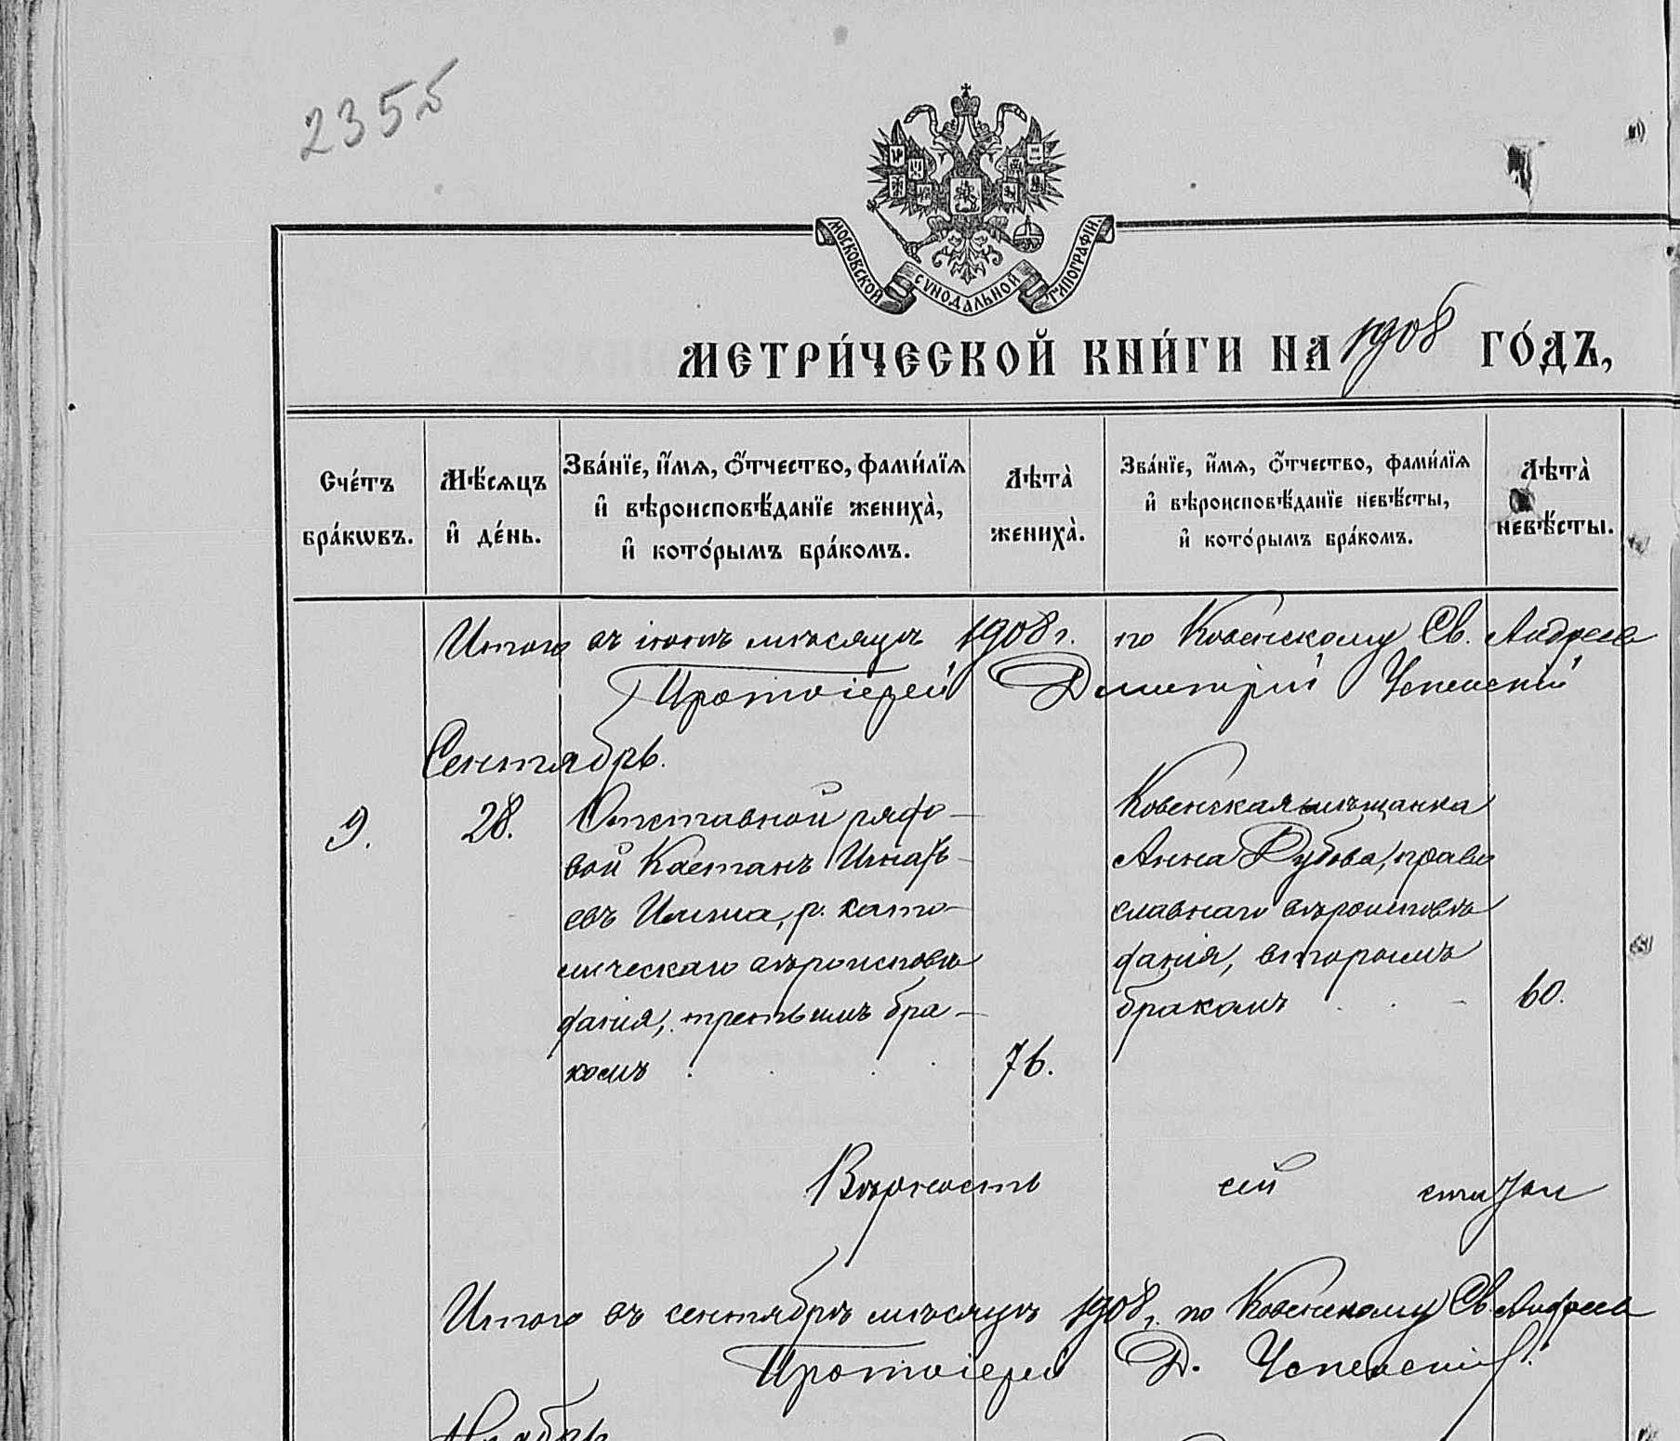 2355
МОСКОВСКОЙ СѴНОДАЛЬНОЙ ТИПОГРАФІИ.
МЕТРИ́ЧЕСКОЙ КНИ́ГИ НА 1908 ГО́ДЪ,
Сче́тъ бра́кѡвъ.
Мѣ́сѧцъ и҆ де́нь.
Зва́нїе, и҆́мѧ, ѻ҆́тчество, фами́лїѧ
и҆ вѣроисповѣ́данїе жениха̀,
и҆ кото́рымъ бра́комъ.
Лѣта̀ жениха̀.
Зва́нїе, и҆́мѧ, ѻ҆́тчество, фами́лїѧ
и҆ вѣроисповѣ́данїе невѣ́сты,
и҆ кото́рымъ бра́комъ.
Лѣта̀ невѣ́сты.
Итого въ мѣсяцѣ 1908 г. по Ковенскому Св. Андреев
Протоіерей Димитрій Успенскій
Сентябрь.
9.
28.
Отставной рядо-
вой Каетанъ Игнатъ-
евъ р. като-
лическаго вѣроисповѣ
данія, третьимъ бра-
комъ
76.
Ковенская мѣщанка
Анна православнаго вѣроисповѣ
данія, вторымъ
бракомъ
60.
Вѣрность сей статьи
Итого въ сентябрѣ мѣсяцѣ 1908 г. по Ковенскому Св Андреев
Протоіерей Д. Успенскій.